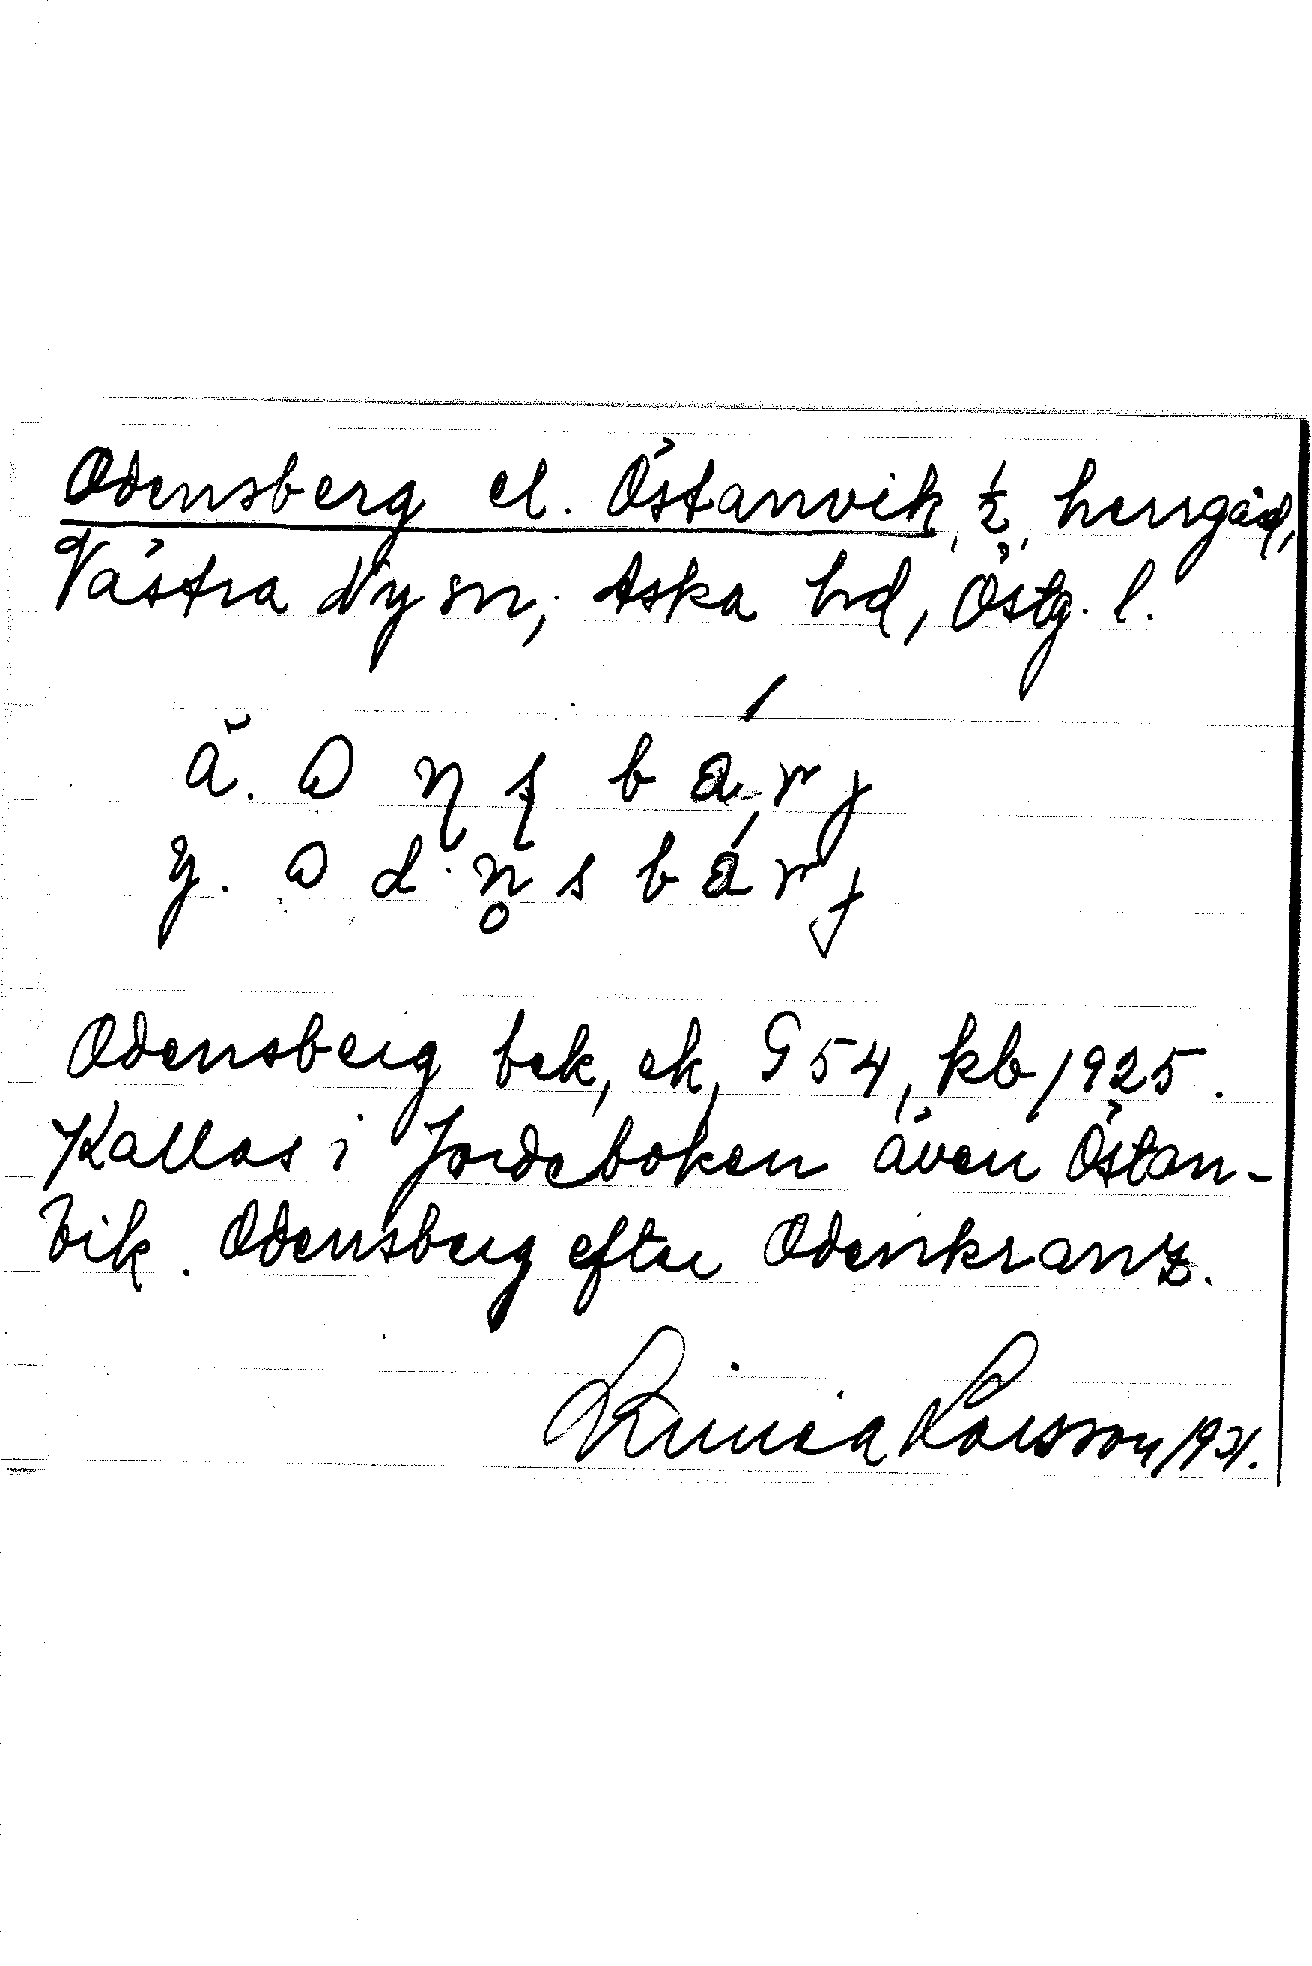 Odensberg el. Östanvik, ½, herrgård,
Västra Ny sn, Aska hd, Östg. l.
ä.
y.
Odensberg bek, ek, G 54, kb 1925.
Kallas i Jordeboken även Östan-
vik. Odensberg efter Odenkranz.
Linnea Larsson